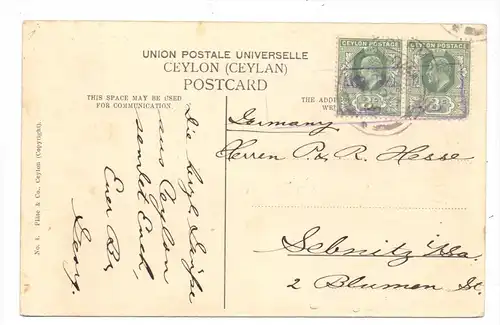 UNION POSTALE UNIVERSELLE
CEYLON (CEYLAN)
POSTCARD
THIS SPACE MAY BE USED
FOR COMMUNICATION.
THE ADDRE
CEYLON POSTAGE
CEYLON POSTAGE
Germany
Herren P. & R. Hesse
Sebnitz i/Sa.
2 Blumen St.
Die herzl. Grüße
aus Ceylon
sendet Euch,
Euer Br.
Georg.
No. 4. Plâté & Co., Ceylon (Copyright).